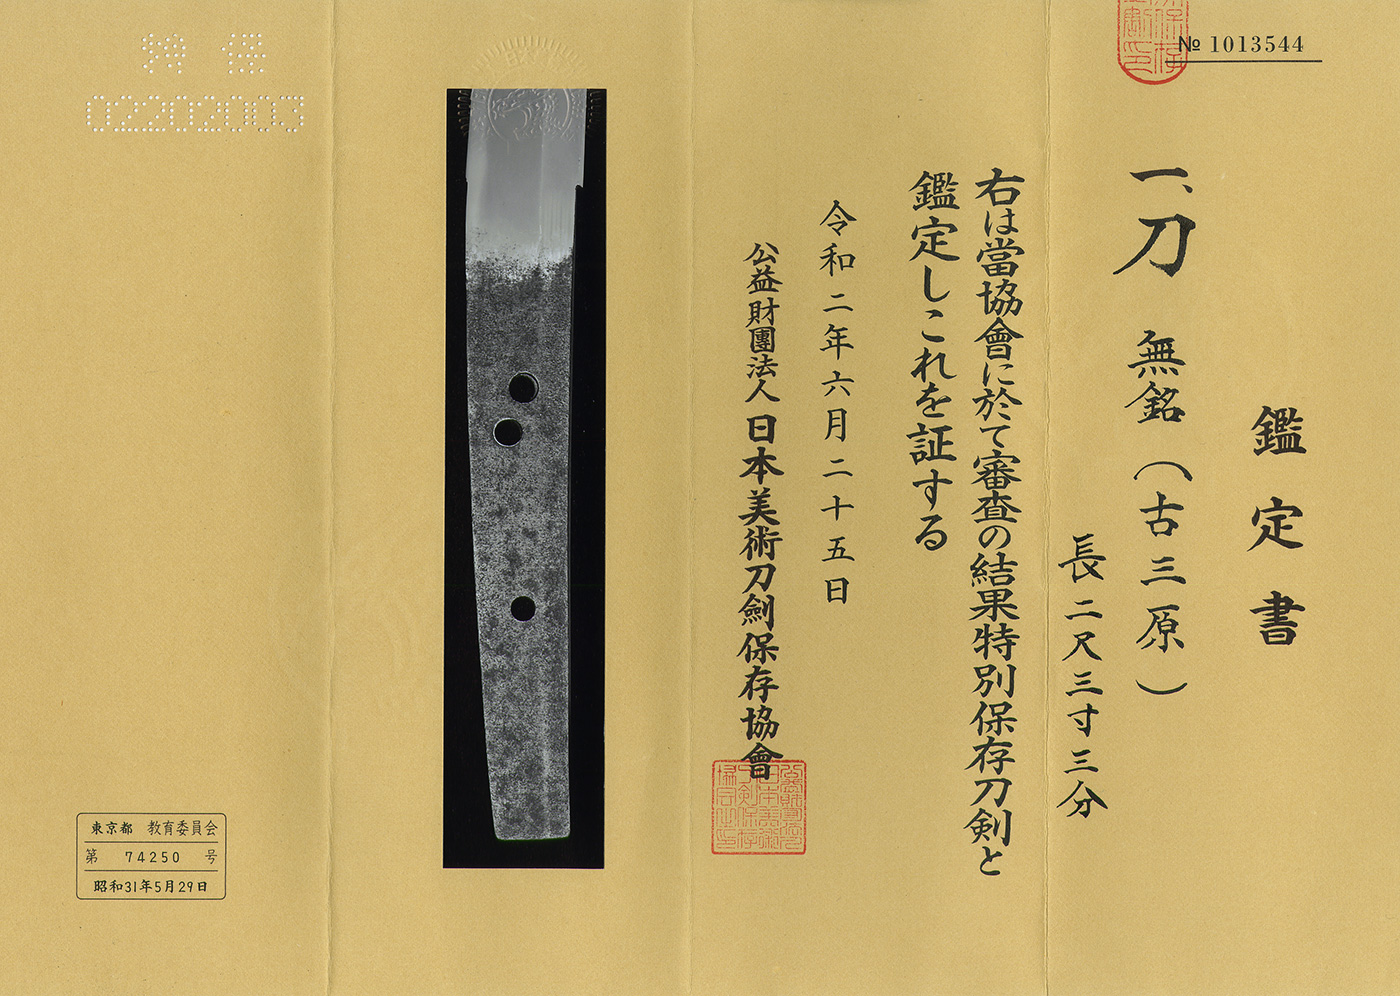 № 1013544
鑑定書
一、刀 無銘(古三原)
長二尺三寸三分
右は當協會に於て審査の結果特別保存刀剣と
鑑定しこれを証する
令和二年六月二十五日
公益財團法人 日本美術刀劍保存協會
特保
02202003
東京都 教育委員会
第 74250 号
昭和31年5月29日